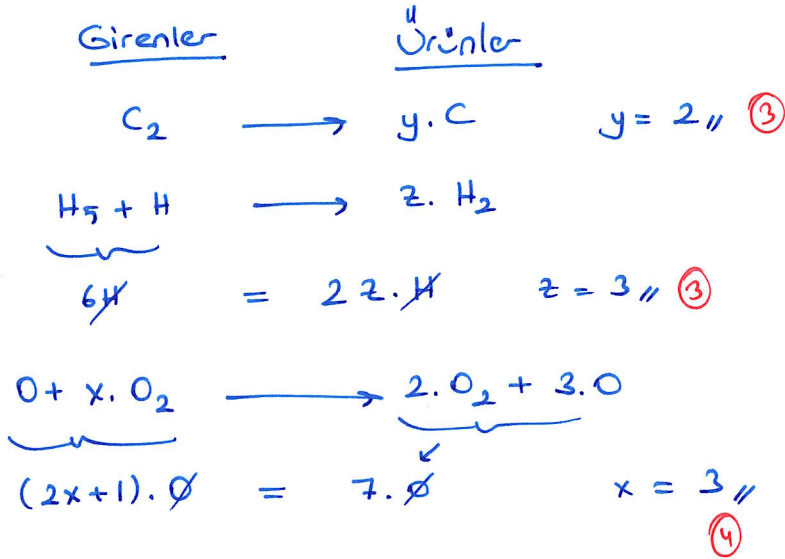 Girenler Ürünler
C₂ → y.C y = 2 // 3
H₅ + H → z. H₂
6H = 2 z.H z = 3 // 3
O + x. O₂ → 2. O₂ + 3.O
(2x+1). O = 7. O x = 3 //
4